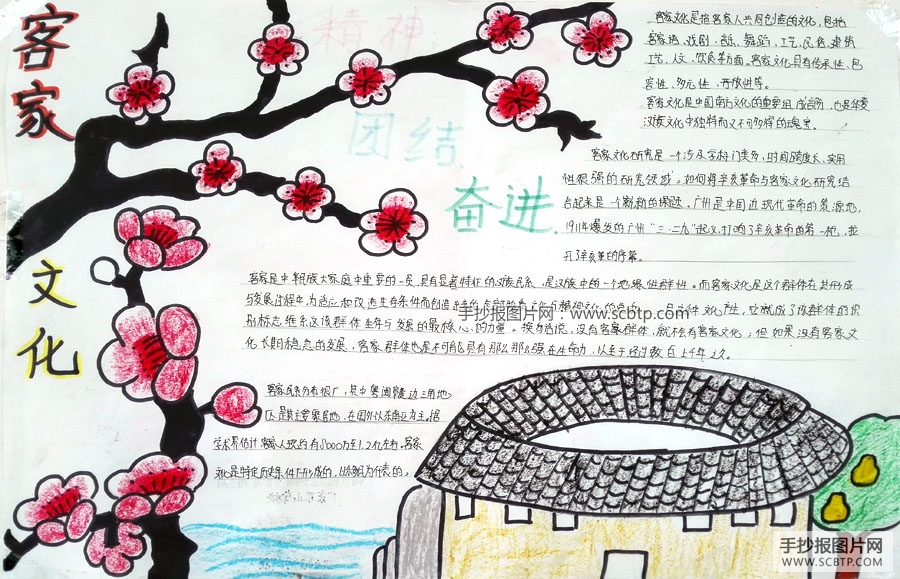 客家
文化
精神
团结
奋进
客家文化是指客家人共同创造的文化，包括
客家语、戏剧、音乐、舞蹈、工艺、民俗、建筑
工艺、人文、饮食等方面。客家文化具有传承性、包
容性、多元性、开放性等。
客家文化是中国南方文化的重要组成部分，也是华夏
汉族文化中独特而又不可多得的瑰宝。
客家文化研究是一个涉及学科门类多，时间跨度长，实用
性很强的研究领域。如何将辛亥革命与客家文化研究结
合起来是一个崭新的课题。广州是中国近现代革命的策源地，
1911年爆发的广州“三·二九”起义，打响了辛亥革命的第一枪，拉
开了辛亥革命的序幕。
客家是中华民族大家庭中重要的一员，具有显著特征的汉族民系，是汉族中的一个地缘性群体。而客家文化是这个群体在其形成
与发展过程中，为适应和改造生存条件而创造
手抄报图片网：www.scbtp.com
是这种文化产生，它就成了该群体的识
别标志，维系这该群体生存与发展的最核心的力量。换句话说，没有客家群体，就不会有客家文化，但如果没有客家文
化长期稳定的发展，客家群体也是不可能具有那么那么强在生命力，以至于经过数百上千年之久。
客家民系分布很广，其中粤闽赣边三角地
区是其主要聚居地，在国外以东南亚为主。据
学术界估计客家人现约有8000万至1.2亿左右。客家
文化是特定历史条件下形成的，以移民为代表的。
手抄报图片网
WWW.SCBTP.COM